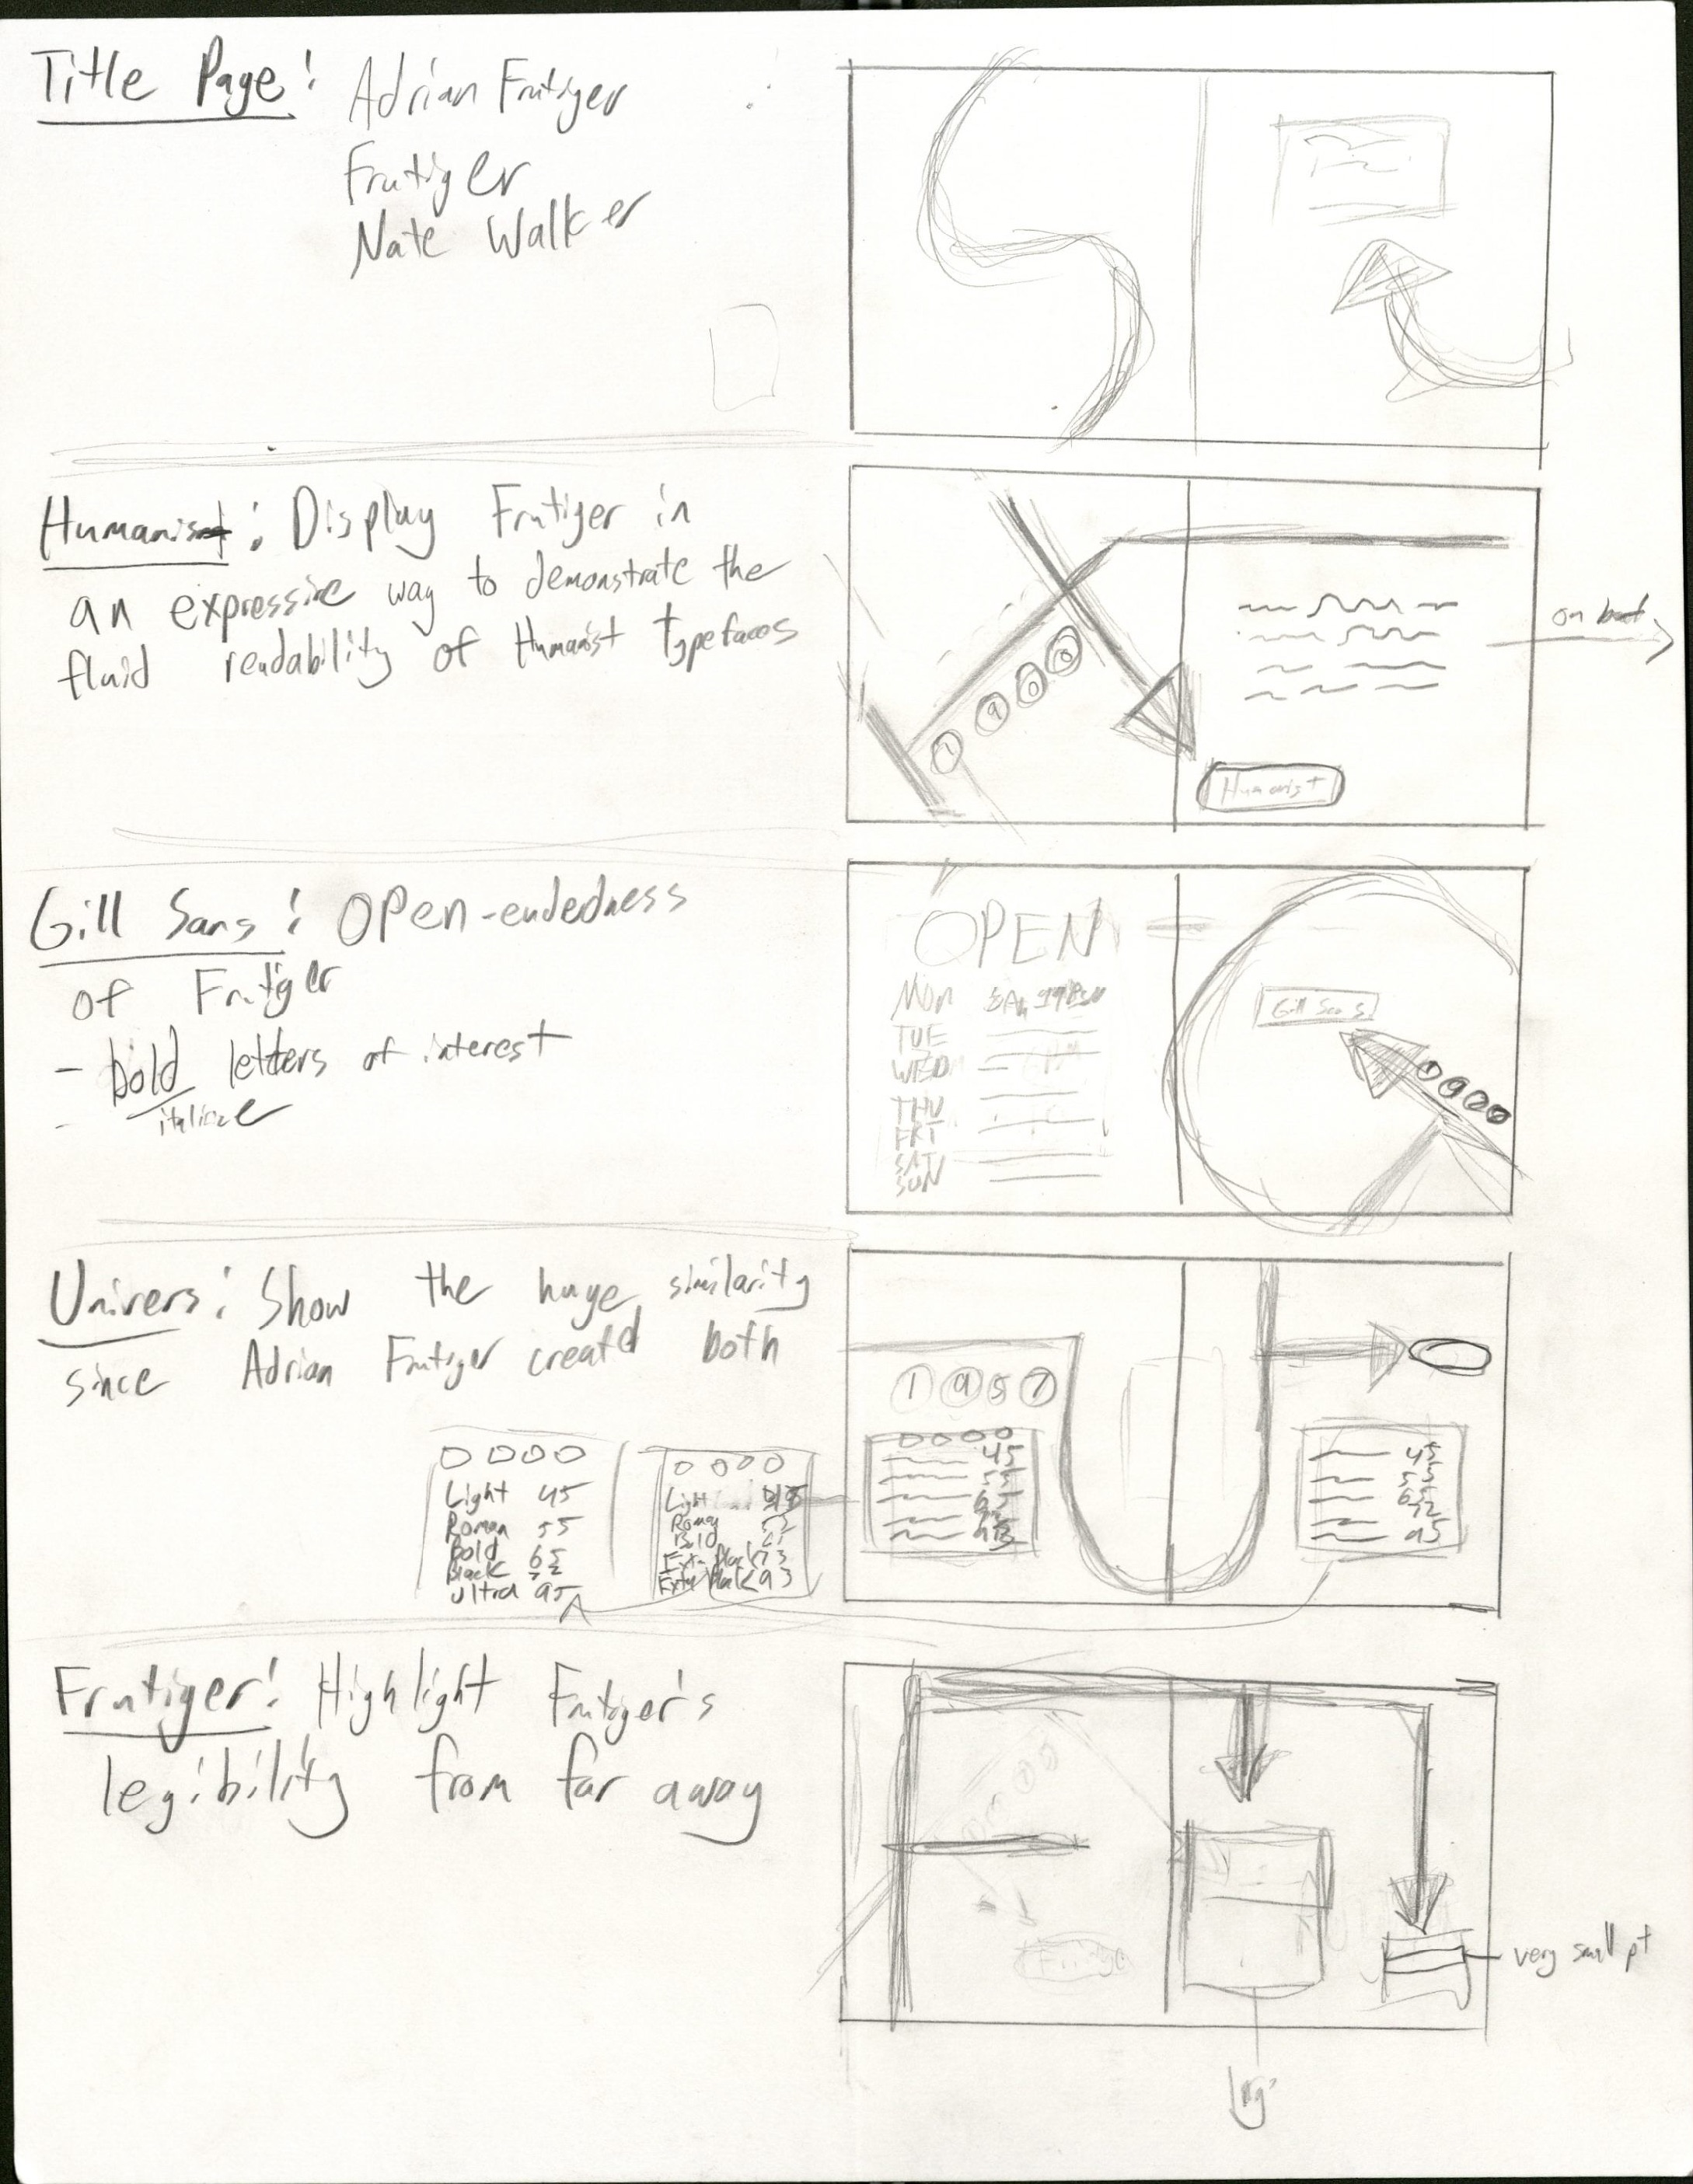 Title Page: Adrian Frutiger
Frutiger
Nate Walker
Humanist: Display Frutiger in
an expressive way to demonstrate the
fluid readability of Humanist typefaces
1 9 0 0
Humanist
on
Gill Sans: Open-endedness
of Frutiger
- bold letters of interest
- italicize
OPEN
MON
TUE
WED
THU
FRI
SAT
SUN
Gill Sans
Univers: Show the huge similarity
since Adrian Frutiger created both
Light 45
Roman 55
Bold 65
Black
Ultra 95
Light
Roman
Bold
Extra Black 93
1 9 5 7
45
55
65
45
55
65
95
Frutiger: Highlight Frutiger's
legibility from far away
very small pt